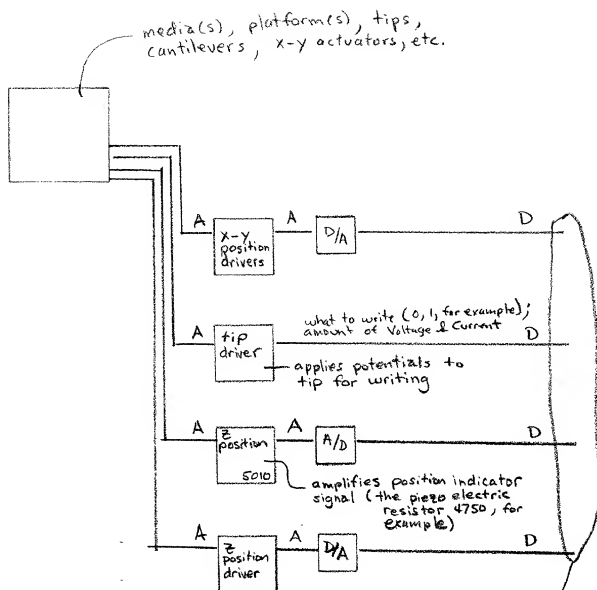 media(s), platform(s), tips,
cantilevers, x-y actuators, etc.
A
x-y
position
drivers
A
D/A
D
A
tip
driver
what to write (0, 1, for example);
amount of Voltage & Current
D
applies potentials to
tip for writing
A
Z
position
5010
A
A/D
D
amplifies position indicator
signal (the piezo electric
resistor 4750, for
example)
A
Z
position
driver
A
D/A
D